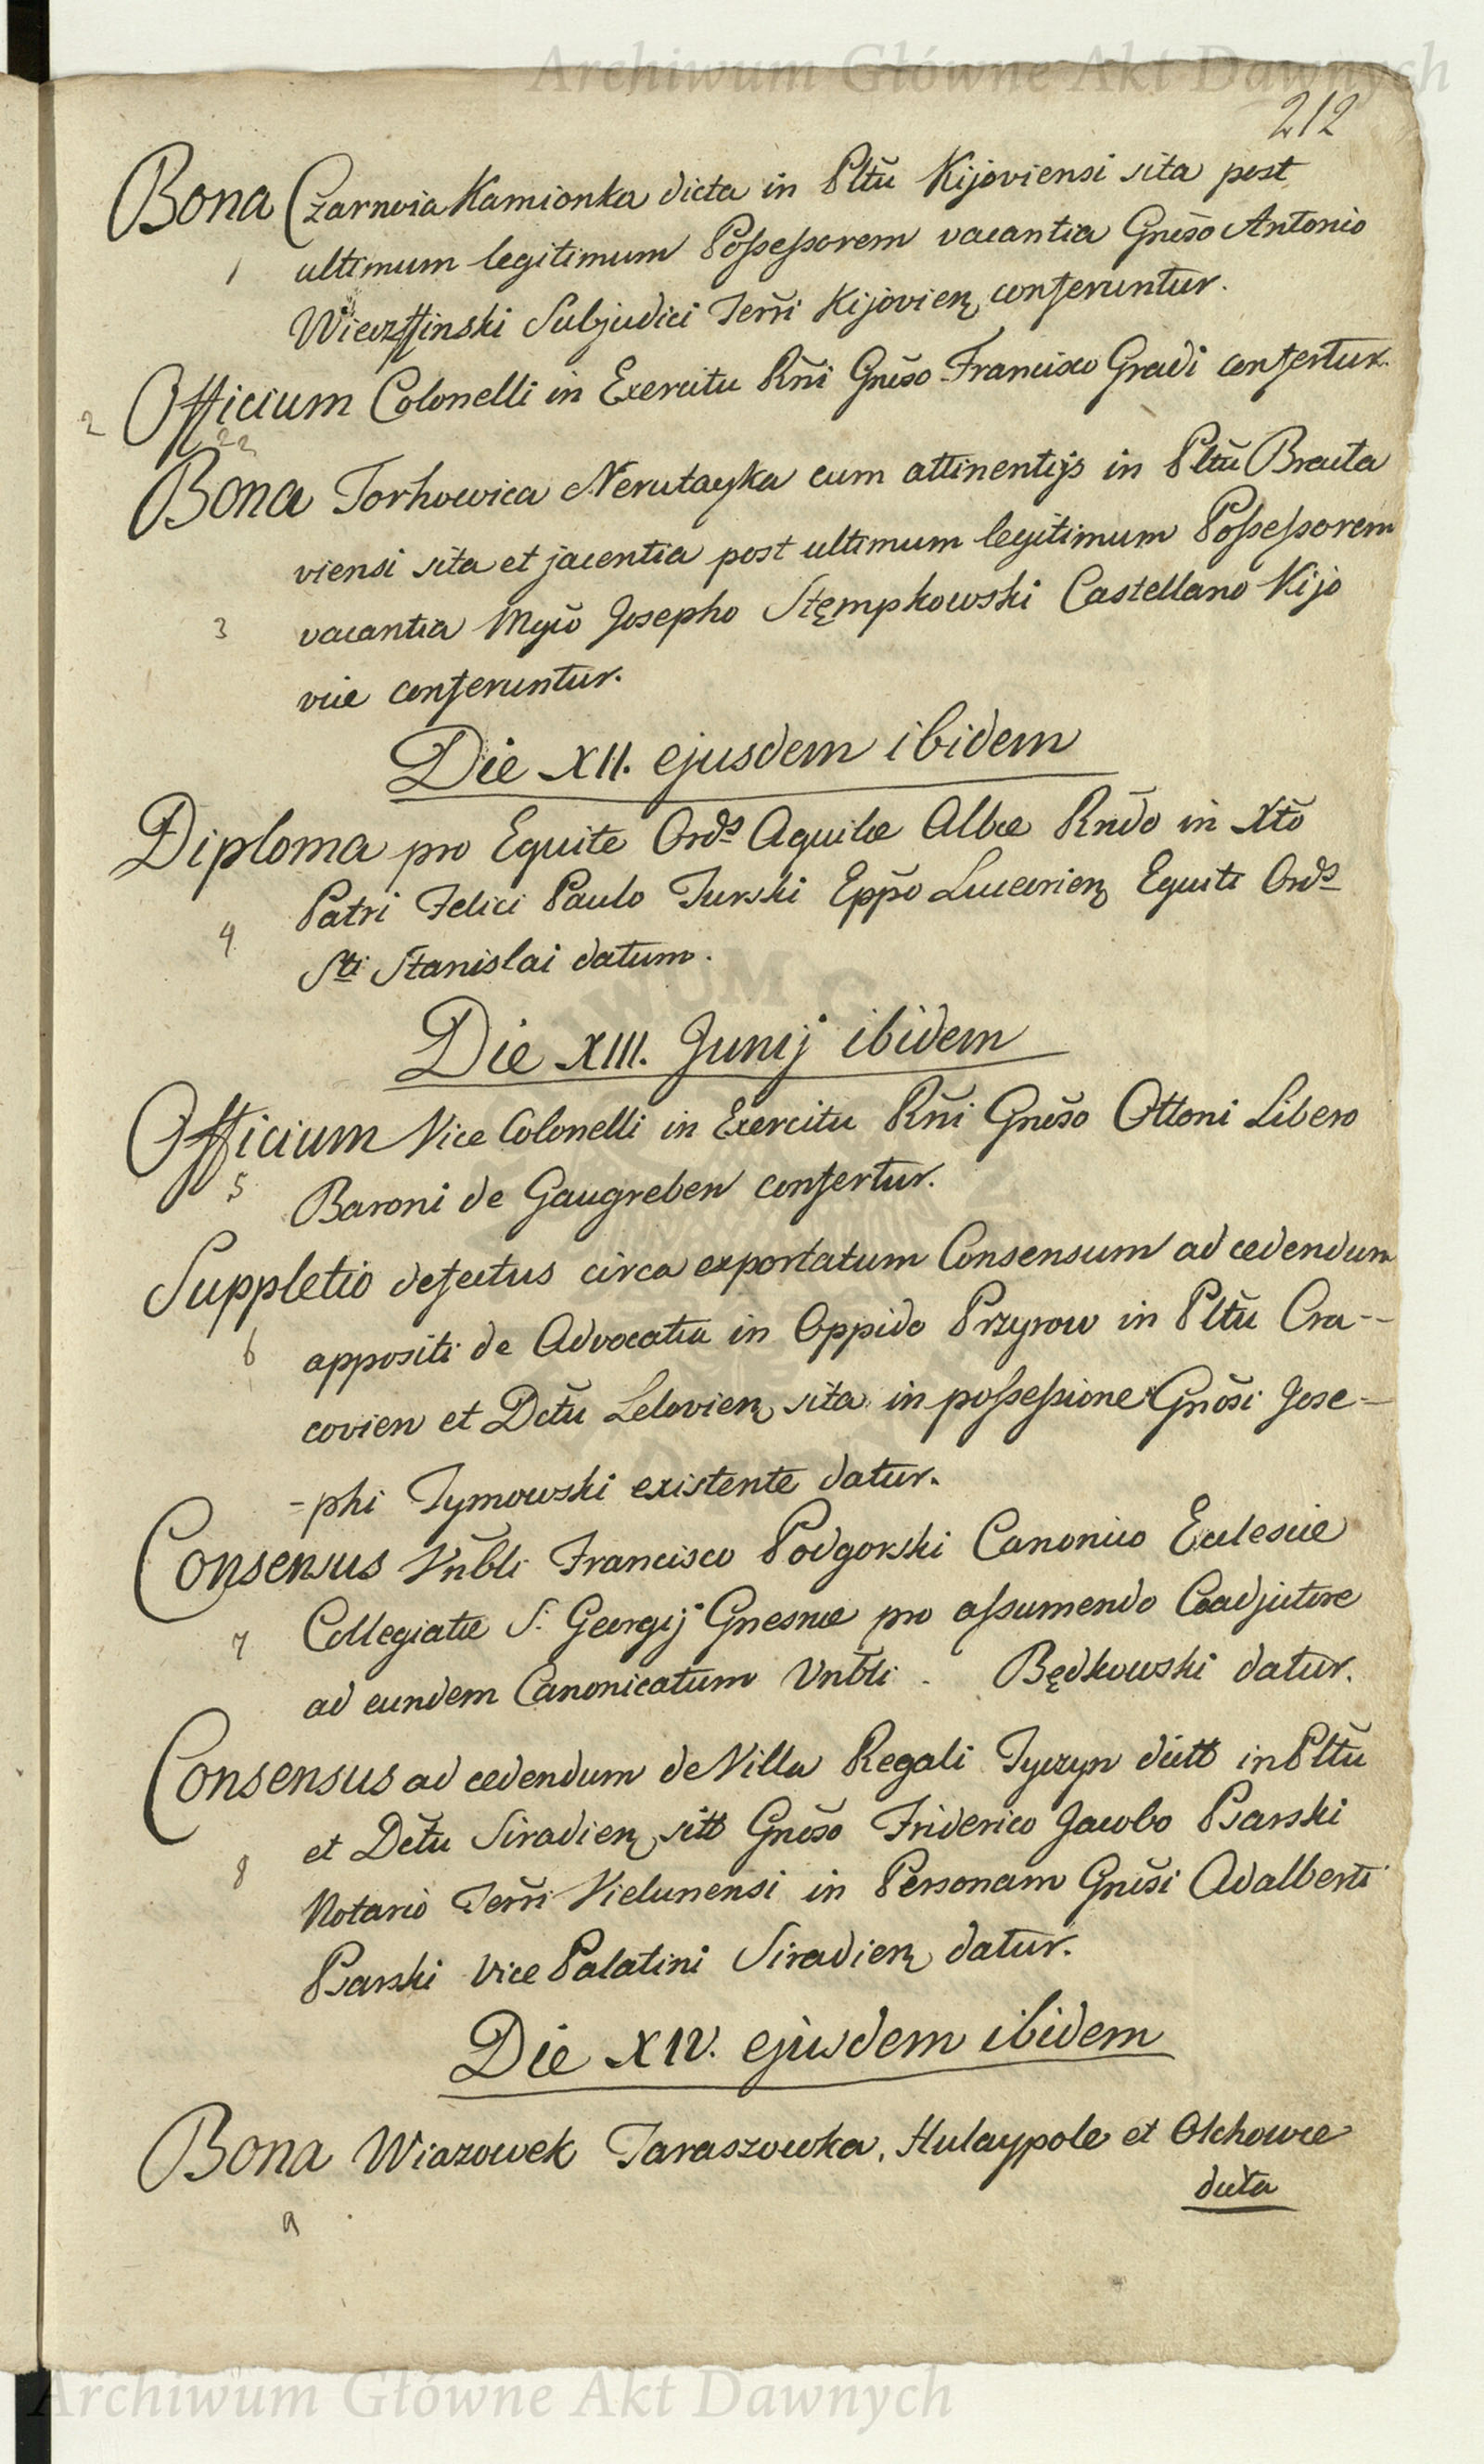 Archiwum Główne Akt Dawnych
212
Bona Czarnvia Kamionka dicta in Pltũ Kijoviensi sita post
1 ultimum legitimum Poſseſsorem vacantia Gnẽso Antonio
Subjudici Terrĩ Kijovien conferuntur.
2 Officium Colonelli in Exercitu Rñi Gnẽso Francisco Gradi confertur.
Bona Torhowica Nerutayka cum attinentijs in Pltũ Bracła
viensi sita et jacentia post ultimum legitimum Poſseſsorem
3 vacantia Mgcõ Josepho Stępkowski Castellano Kijo
viæ conferuntur.
Die XII. ejusdem ibidem
Diploma pro Equite Ords Aquilæ Albæ Rndõ in Xtõ
4 Patri Felici Paulo Turski Eppõ Luceorien Equiti Ords
Sti Stanislai datum.
Die XIII. Junij ibidem
Officium Vice Colonelli in Exercitu Rñi Gnẽso Ottoni Libero
5 Baroni de Gaugreben confertur.
Suppletio defectus circa exportatum Consensum ad cedendum
6 appositi de Advocatia in Oppido Przyrow in Pltũ Cra--
covien et Dctũ Lelovien sita in poſseſsione Gnõsi Jose-
-phi Tymowski existente datur.
Consensus Vnbli Francisco Podgorski Canonico Ecclesiæ
7 Collegiatæ S. Georgij Gnesnæ pro aſsumendo Coadjutore
ad eundem Canonicatum Vnbli . Będkowski datur.
Consensus ad cedendum de Villa Regali Tyczyn dictt in Pltũ
et Dctũ Siradien sitt Gnẽso Friderico Jacobo Psarski
8 Notario Terrĩ Vielunensi in Personam Gnẽsi Adalberti
Psarski Vice Palatini Siradien datur.
Die XIV. ejusdem ibidem
Bona Wiazowek Taraszowka, Hulaypole et Olchowce
dicta
9
Archiwum Główne Akt Dawnych